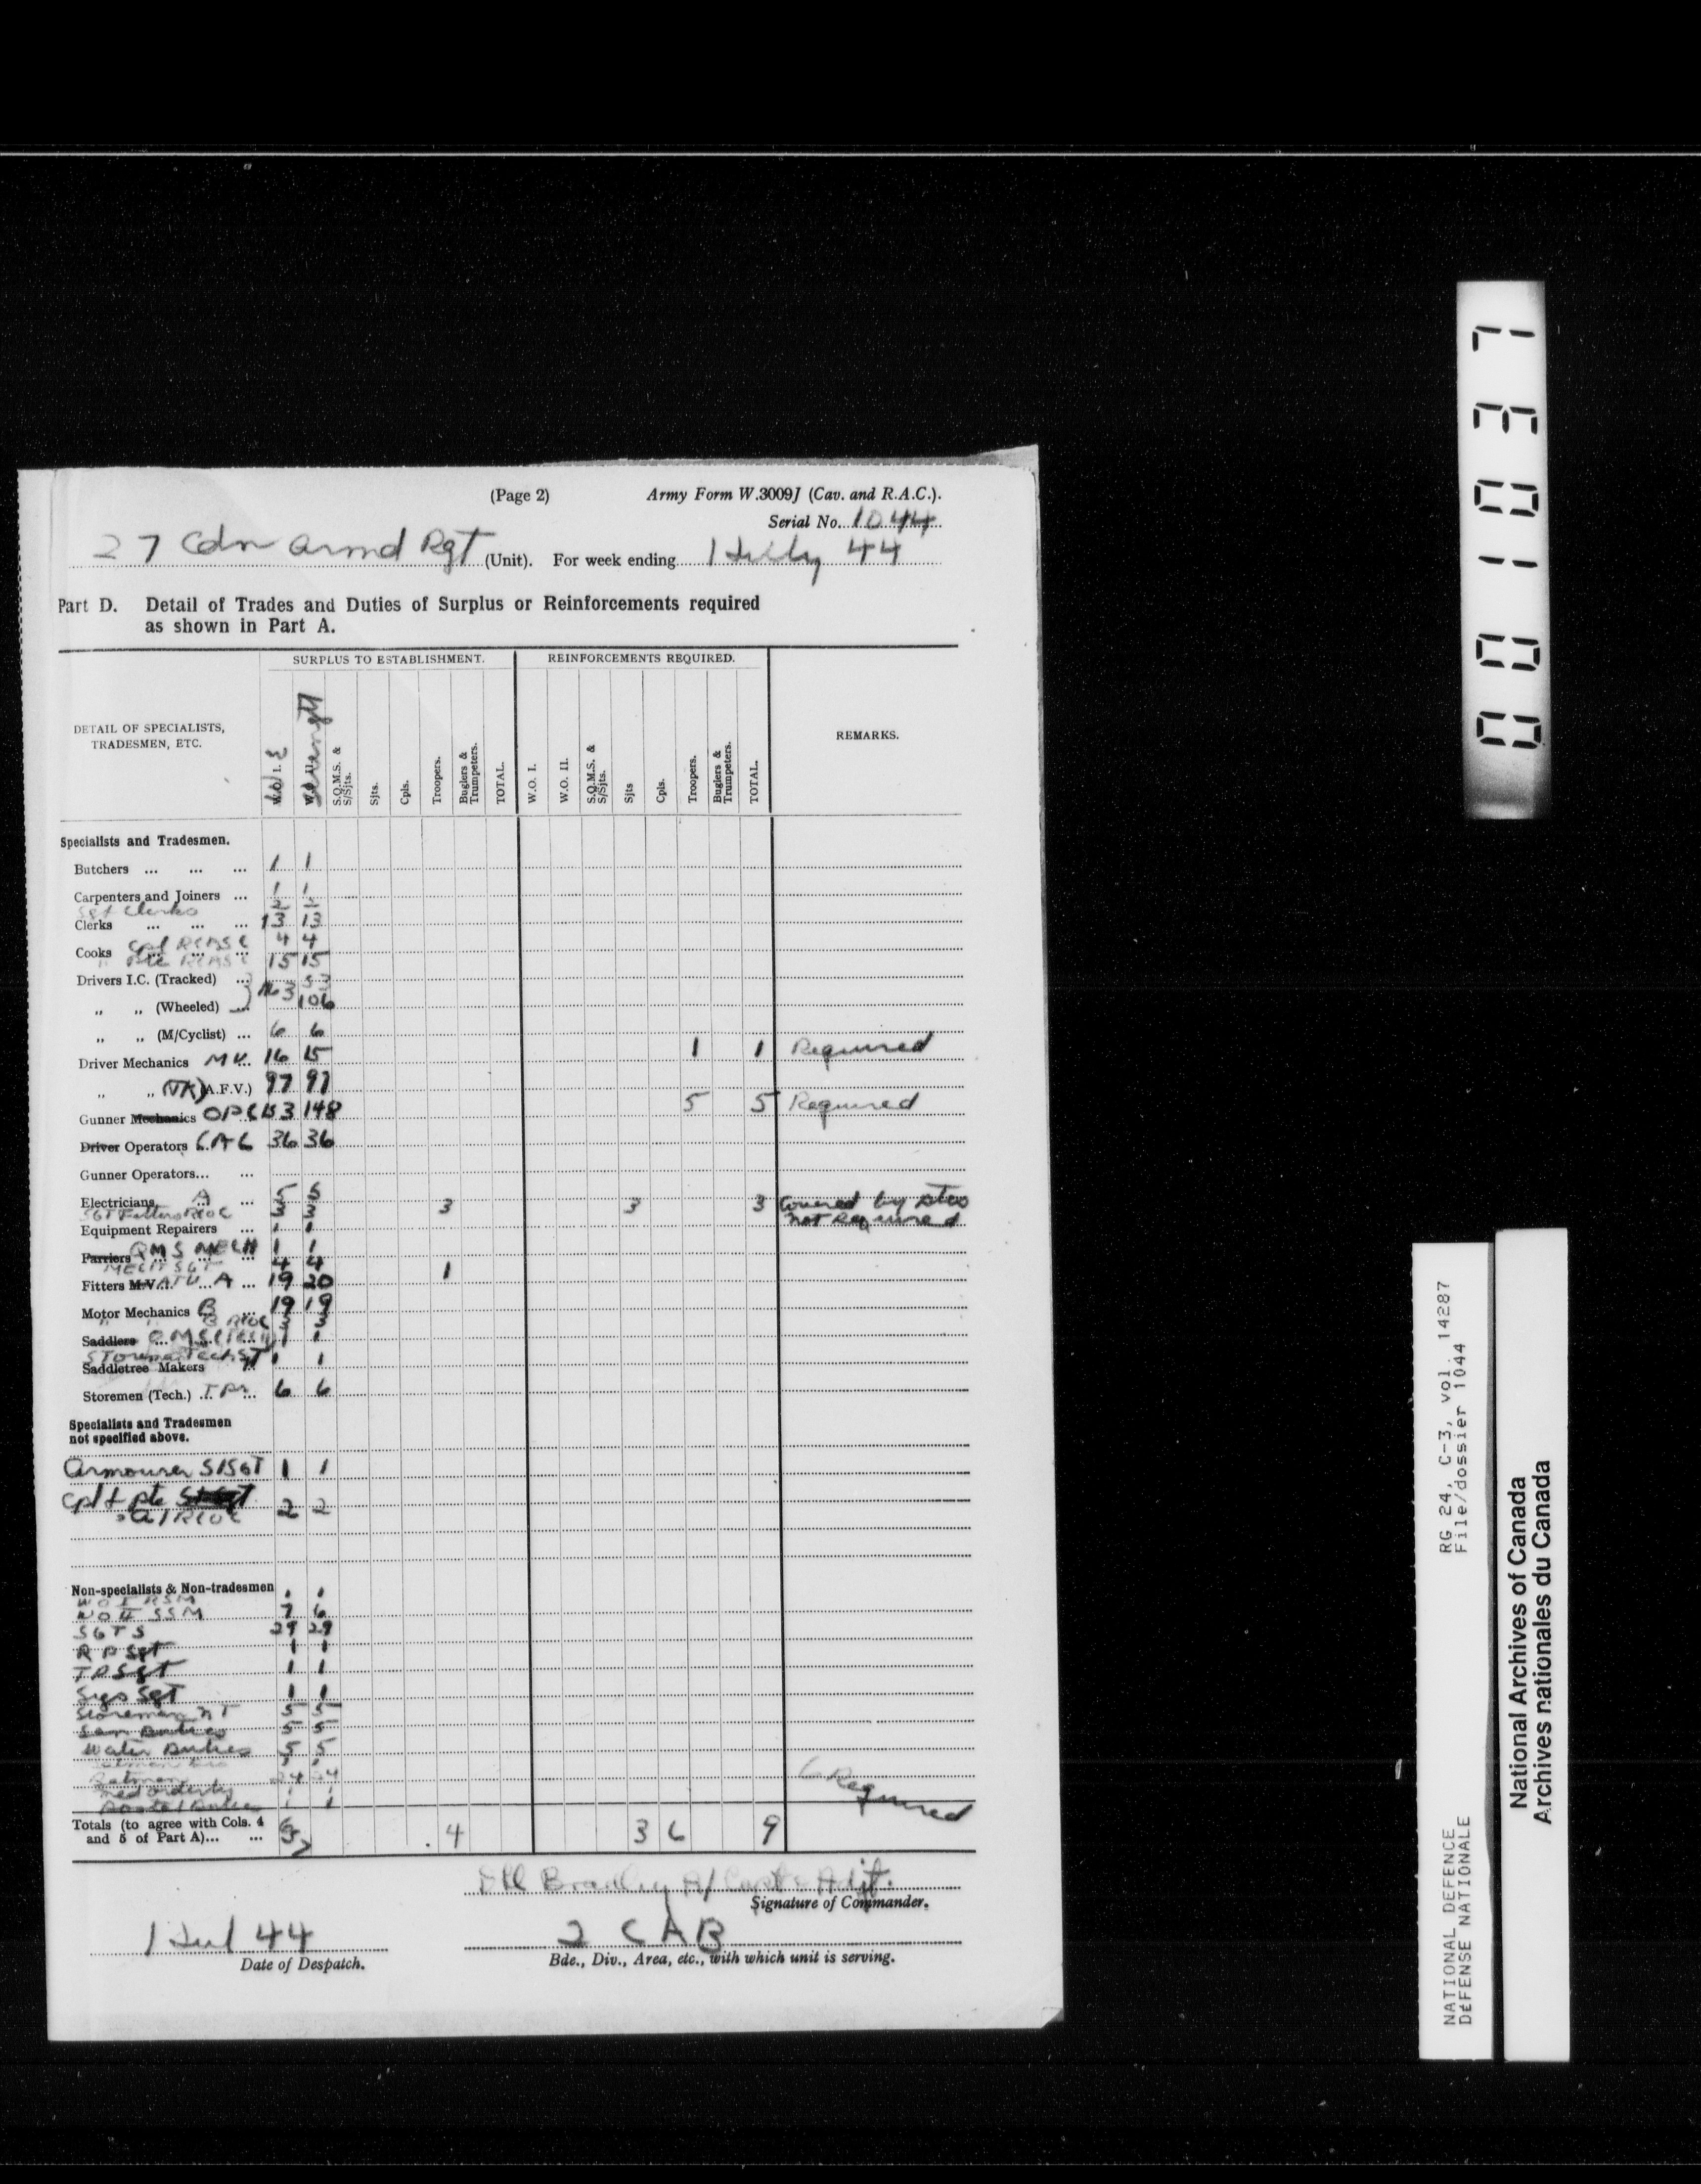 (Page 2) Army Form W.3009J (Cav. and R.A.C.).
Serial No. 1044
27 Cdn Armd Rgt (Unit). For week ending 1 July 44
Part D. Detail of Trades and Duties of Surplus or Reinforcements required
as shown in Part A.
SURPLUS TO ESTABLISHMENT. REINFORCEMENTS REQUIRED.
DETAIL OF SPECIALISTS,
TRADESMEN, ETC.
W.O. I. W.E.
W.O. II. Strength
S.Q.M.S. & S/Sjts.
Sjts.
Cpls.
Troopers.
Buglers & Trumpeters.
TOTAL.
W.O. I.
W.O. II.
S.Q.M.S. & S/Sjts.
Sjts
Cpls.
Troopers.
Buglers & Trumpeters.
TOTAL.
REMARKS.
Specialists and Tradesmen.
Butchers ... ... ... 1 1
Carpenters and Joiners ... 1 1
Sgt Clerks 2 2
Clerks ... ... ... 13 13
Cooks Cpl RCASC 4 4
" Pte RCASC 15 15
Drivers I.C. (Tracked) ... 163 53
„ „ (Wheeled) ... 106
„ „ (M/Cyclist) ... 6 6
Driver Mechanics MV ... 16 15 1 1 Required
„ „ (TK) (A.F.V.) 97 97
Gunner Mechanics OPS 153 148 5 5 Required
Driver Operators C.A.C 36 36
Gunner Operators... ...
Electricians A ... 5 5
SGT Fitters RCOC 3 3 3 3 3 Covered by
not Required
Equipment Repairers ... 1 1
Farriers QMS MECH ... 1 1
MECH SGT 4 4 1
Fitters M.V. A ... 19 20
Motor Mechanics B ... 19 19
" " B RCOC 3 3
Saddlers 1 1
Storeman Tech SGT 1 1
Saddletree Makers
Storemen (Tech.) ... 6 6
Specialists and Tradesmen
not specified above.
Armourer S/SGT 1 1
Cpl & Pte
RCOC 2 2
Non-specialists & Non-tradesmen
WO I RSM 1 1
WO II SSM 7 6
SGTS 29 29
R P Sgt 1 1
T P Sgt 1 1
Sigs Sgt 1 1
Storeman N T 5 5
San Duties 5 5
Water Duties 5 5
Batmen 24 24
Med orderly 1 1
Postal Duties 1 1
6 Required
Totals (to agree with Cols. 4
and 5 of Part A)... ... 4 3 6 9
Bradley A/Capt & Adjt.
Signature of Commander.
1 Jul 44
Date of Despatch.
2 CAB
Bde., Div., Area, etc., with which unit is serving.
001037
RG 24, C-3, vol. 14287
File/dossier 1044
NATIONAL DEFENCE
DéFENSE NATIONALE
National Archives of Canada
Archives nationales du Canada